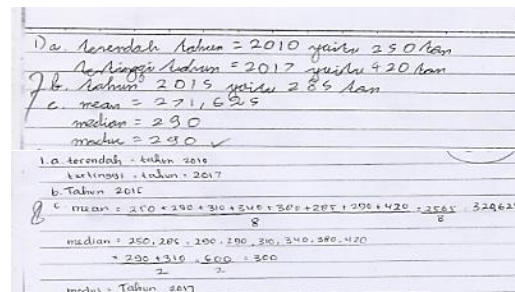 1) a. terendah tahun = 2010 yaitu 250 ton
tertinggi tahun = 2017 yaitu 420 ton
b. tahun 2015 yaitu 285 ton
c. mean = 271,625
median = 290
modus = 290 ✓
1. a. terendah = tahun 2010
tertinggi = tahun = 2017
b. Tahun 2015
c. mean = 250 + 290 + 310 + 340 + 380 + 285 + 290 + 420 = 2565 = 320,62
8 8
median = 250, 285, 290, 290, 310, 340, 380, 420
= 290 + 310 = 600 = 300
2 2
modus = Tahun 2017